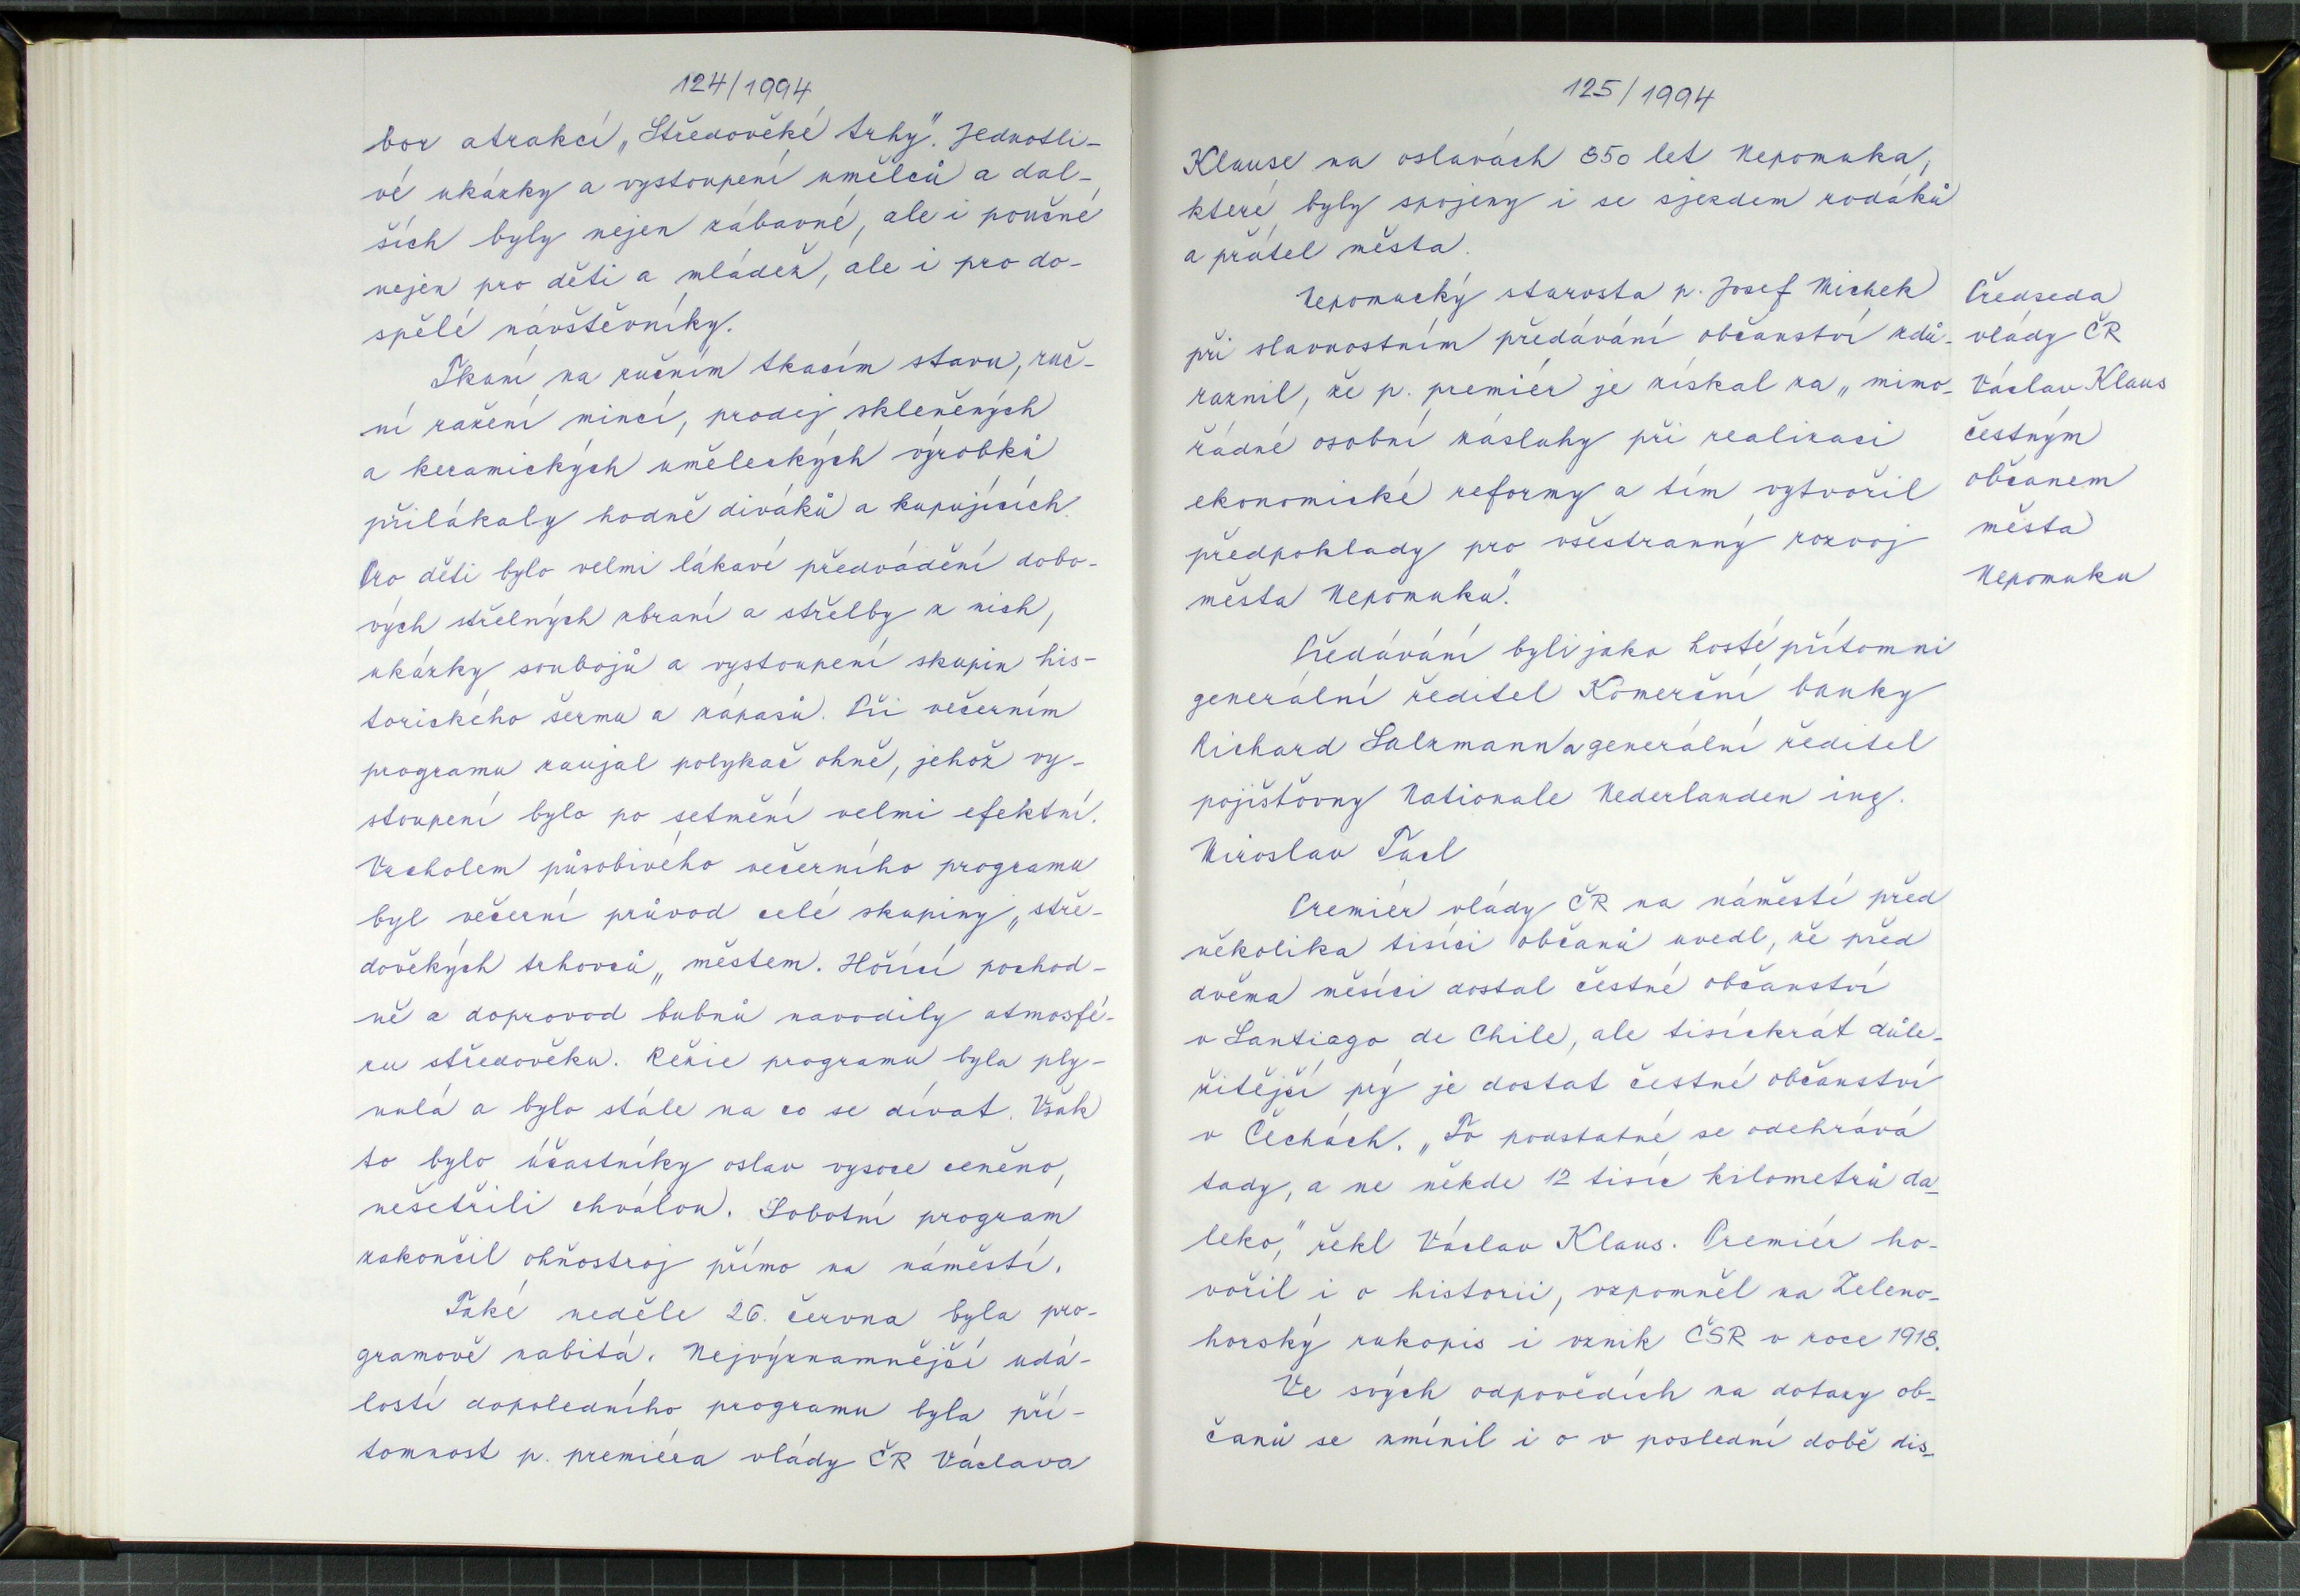 124/1994
bor atrakcí „Středověké trhy". Jednotli-
vé ukázky a vystoupení umělců a dal-
ších byly nejen zábavné, ale i poučné
nejen pro děti a mládež, ale i pro do-
spělé návštěvníky.
Tkaní na ručním tkacím stavu, ruč-
ní ražení mincí, prodej skleněných
a keramických uměleckých výrobků
přilákaly hodně diváků a kupujících.
Pro děti bylo velmi lákavé předvádění dobo-
vých střelných zbraní a střelby z nich,
ukázky soubojů a vystoupení skupin his-
torického šermu a zápasů. Při večerním
programu zaujal polykač ohně, jehož vy-
stoupení bylo po setmění velmi efektní.
Vrcholem působivého večerního programu
byl večerní průvod celé skupiny „stře-
dověkých trhovců„ městem. Hořící pochod-
ně a doprovod bubnů navodily atmosfé-
ru středověku. Režie programu byla ply-
nulá a bylo stále na co se dívat. Však
to bylo účastníky oslav vysoce ceněno,
nešetřili chválou. Sobotní program
zakončil ohňostroj přímo na náměstí.
Také neděle 26. června byla pro-
gramově nabitá. Nejvýznamnější udá-
lostí dopoledního programu byla pří-
tomnost p. premiéra vlády ČR Václava
125/1994
Klause na oslavách 850 let Nepomuka,
které byly spojeny i se sjezdem rodáků
a přátel města.
Nepomucký starosta p. Josef Michek
při slavnostním předávání občanství zdů-
raznil, že p. premiér je získal za „mimo-
řádné osobní zásluhy při realizaci
ekonomické reformy a tím vytvořil
předpoklady pro všestranný rozvoj
města Nepomuku".
Předávání byli jako hosté přítomni
generální ředitel Komerční banky
Richard Salzmann a generální ředitel
pojišťovny Nationale Nederlanden ing.
Miroslav Tacl
Premiér vlády ČR na náměstí před
několika tisíci občanů uvedl, že před
dvěma měsíci dostal čestné občanství
v Santiago de Chile, ale tisíckrát důle-
žitější prý je dostat čestné občanství
v Čechách. „To podstatné se odehrává
tady, a ne někde 12 tisíc kilometrů da-
leko," řekl Václav Klaus. Premiér ho-
vořil i o historii, vzpomněl na Zeleno-
horský rukopis i vznik ČSR v roce 1918.
Ve svých odpovědích na dotazy ob-
čanů se zmínil i o v poslední době dis-
Předseda
vlády ČR
Václav Klaus
čestným
občanem
města
Nepomuku